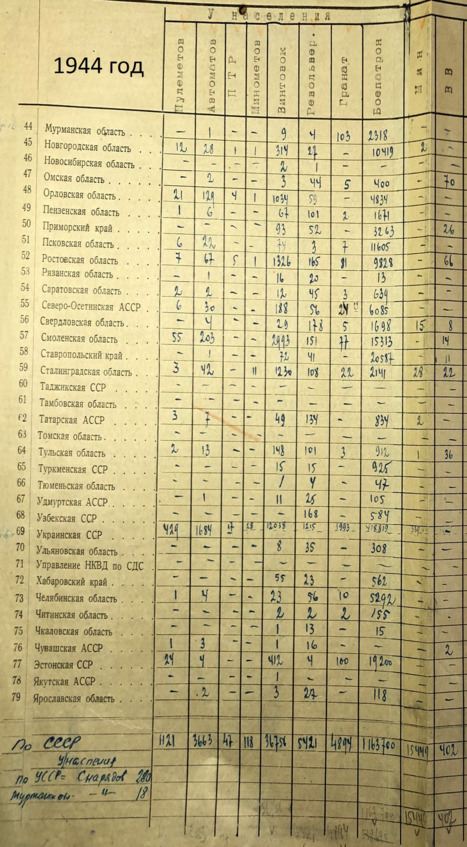 У населения
1944 год
Пулеметов Автоматов П Т Р Минометов Винтовок Револьвер. Гранат Боепатрон Мин ВВ
44 Мурманская область - 1 - - 9 4 103 2318 - -
45 Новгородская область 12 28 1 1 314 27 - 10419 2 -
46 Новосибирская область - - - - 2 1 - - - -
47 Омская область - 2 - - 3 44 5 400 - 70
48 Орловская область 21 129 4 1 1034 59 - 4834 - -
49 Пензенская область 1 6 - - 67 101 2 1671 - -
50 Приморский край - - - - 93 52 - 3263 - 26
51 Псковская область 6 22 - - 74 3 7 11605 - -
52 Ростовская область 7 67 5 1 1326 165 81 9828 - 66
53 Рязанская область - 1 - - 16 20 - 13 - -
54 Саратовская область 2 2 - - 12 45 3 639 - -
55 Северо-Осетинская АССР 6 30 - - 188 56 24 6085 - -
56 Свердловская область - 4 - - 29 178 5 1698 15 8
57 Смоленская область 55 203 - - 2993 151 77 15313 - 14
58 Ставропольский край - 1 - - 72 41 - 20587 - 11
59 Сталинградская область 3 42 - 11 1230 108 22 2141 28 22
60 Таджикская ССР - - - - - - - - - -
61 Тамбовская область - - - - - - - - - -
62 Татарская АССР 3 7 - - 49 134 - 834 2 -
63 Томская область - - - - - - - - - -
64 Тульская область 2 13 - - 148 101 3 912 1 36
65 Туркменская ССР - - - - 15 15 - 925 - -
66 Тюменьская область - - - - 1 4 - 47 - -
67 Удмуртская АССР - 1 - - 11 25 - 105 - -
68 Узбекская ССР - - - - - 168 - 584 - -
69 Украинская ССР 429 1684 17 58 12038 1215
70 Ульяновская область - - - - 8 35 - 308 - -
71 Управление НКВД по СДС
72 Хабаровский край - - - - 55 23 - 562 - -
73 Челябинская область 1 4 - - 23 56 10 5292 - -
74 Читинская область - - - - 2 2 2 155 - -
75 Чкаловская область - - - - 1 13 - 15 - -
76 Чувашская АССР 1 3 - - 1 16 - - - 2
77 Эстонская ССР 24 4 - - 412 4 100 19200 - -
78 Якутская АССР - - - - 1 - - - - -
79 Ярославская область - 2 - - 3 27 - 118 - -
По СССР 1121 3663 47 118 36756 5421 4894 1163700 15449 402
У населения
по УССР= Снарядов 280
18
15449 402